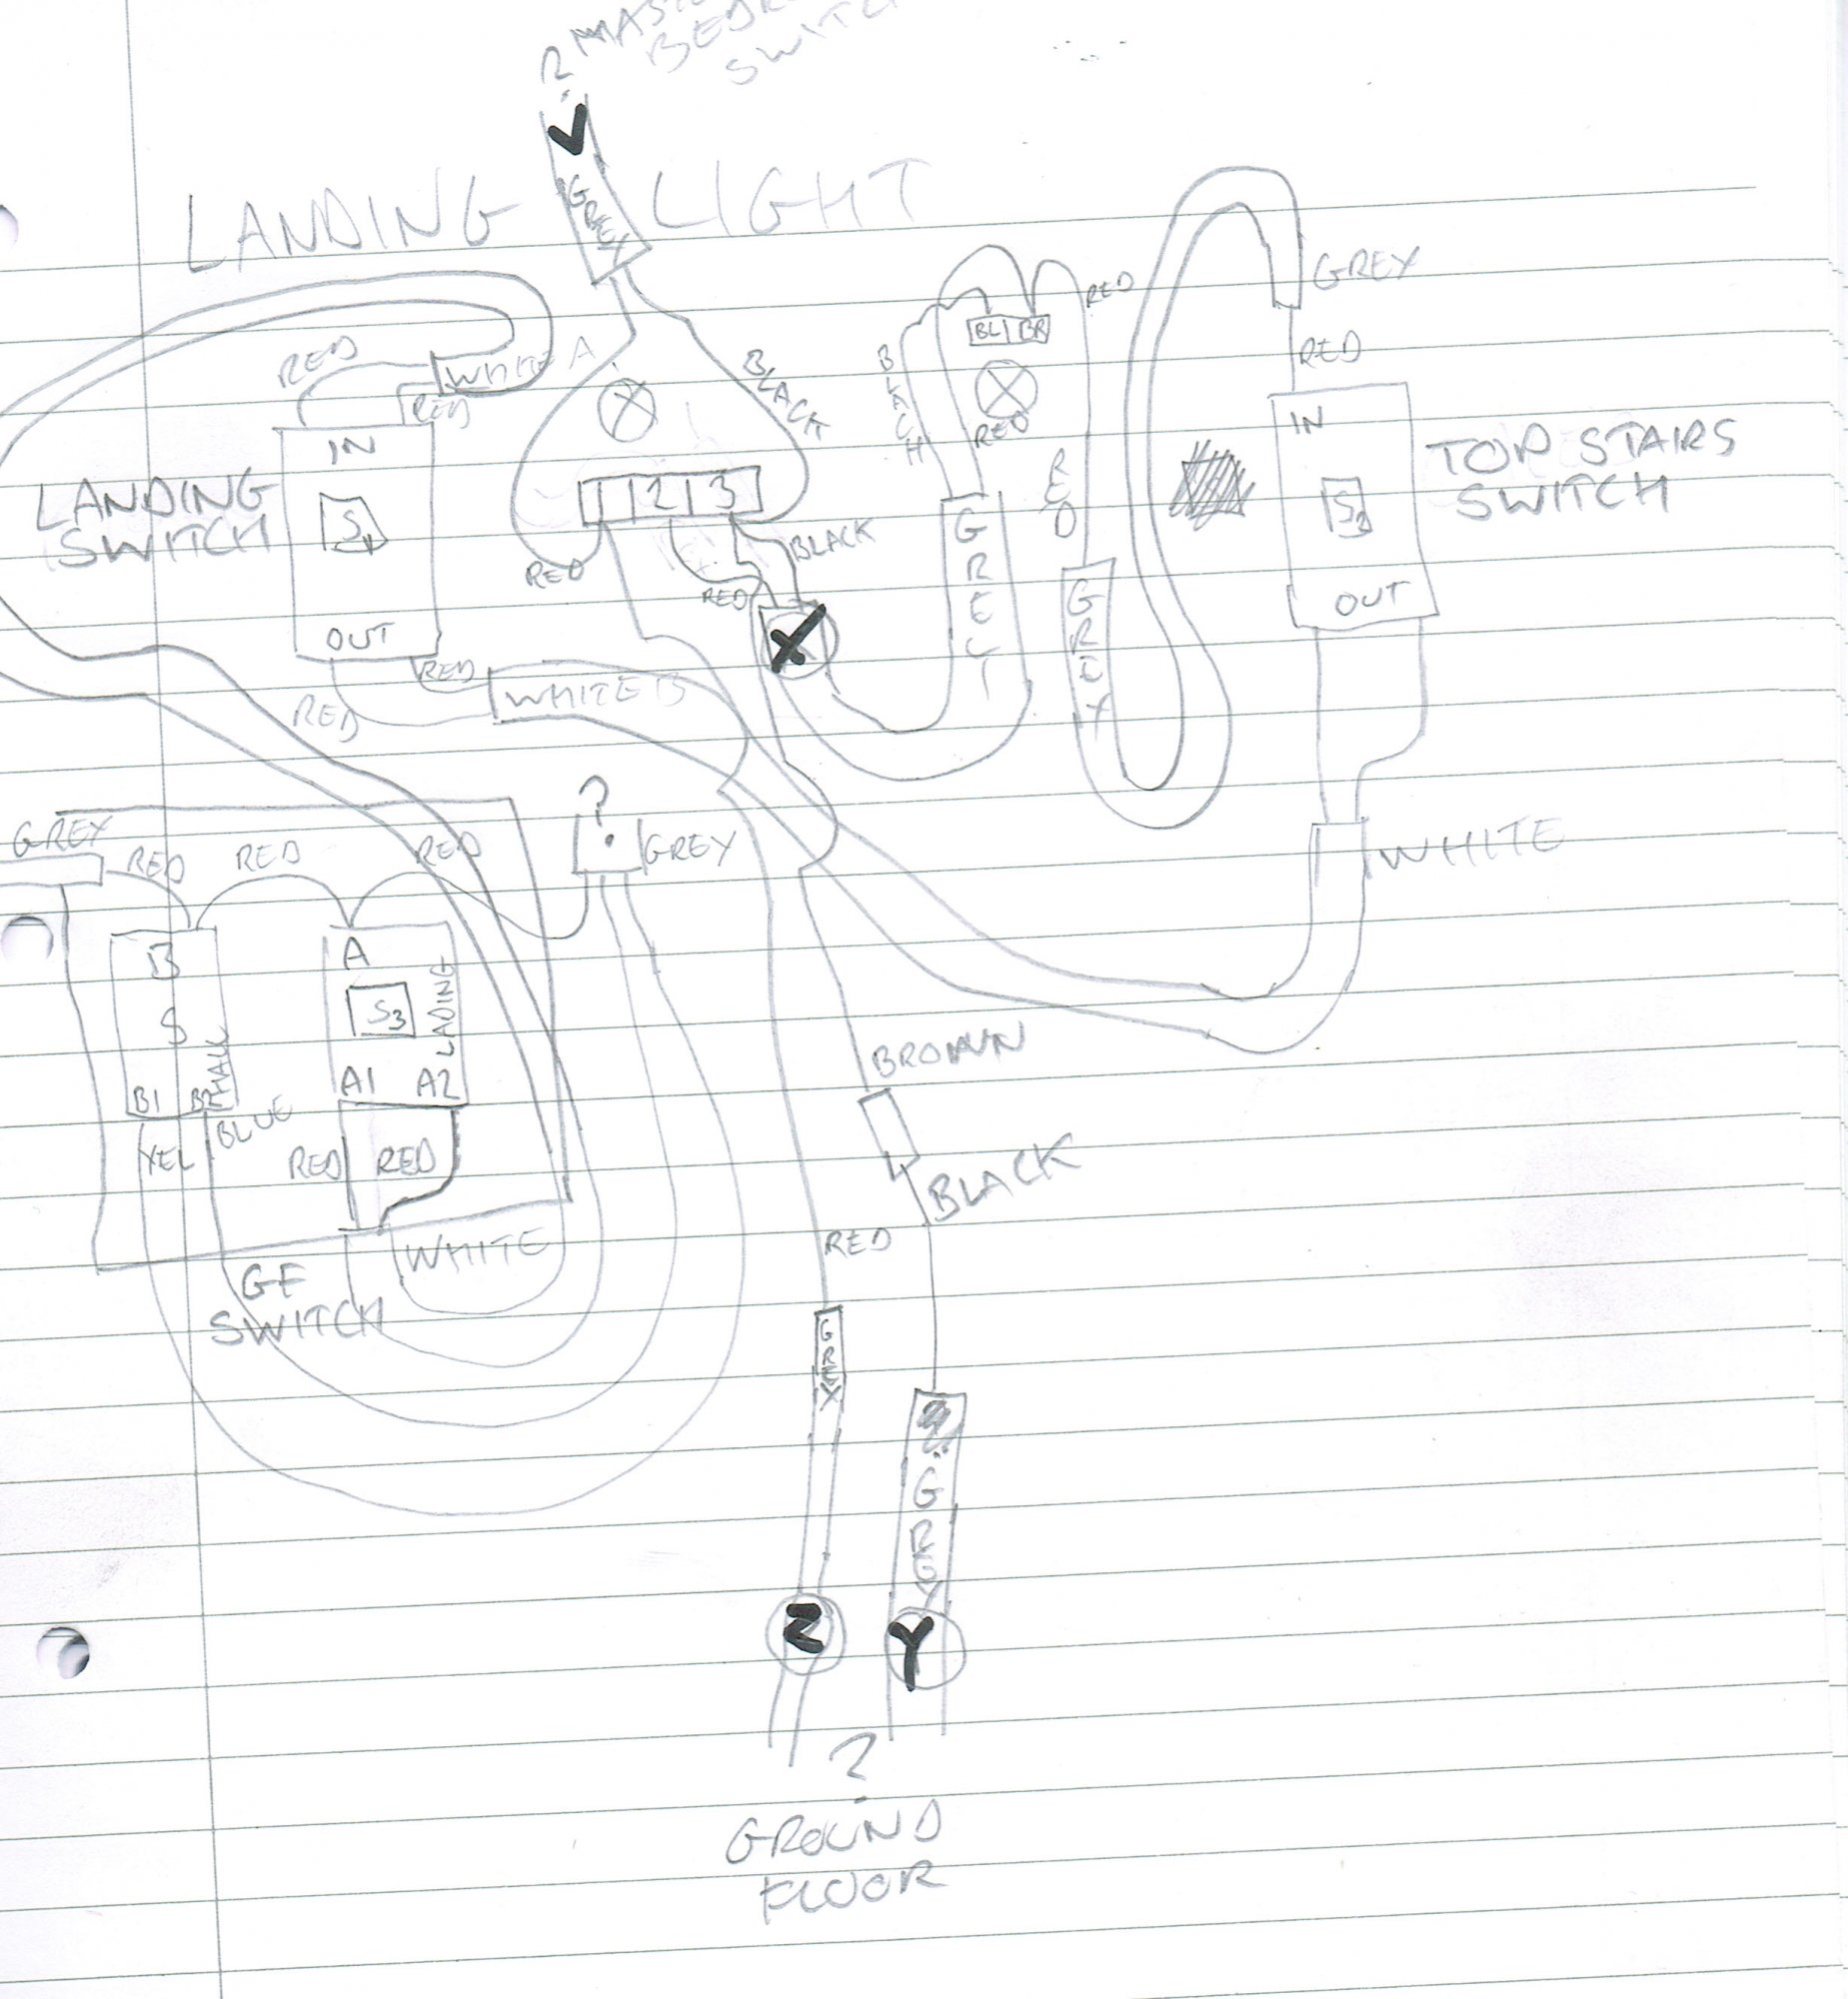 ?
SWITCH
V
GREY
LANDING LIGHT
GREY
RED
BL BR
RED
RED
WHITE A
RED
BLACK
BLACK
RED
IN
IN
TOP STAIRS
SWITCH
LANDING
SWITCH
S1
2 3
RED
S2
GREY
BLACK
RED
RED
GREY
OUT
OUT
X
RED
WHITE B
RED
?
GREY
GREY
RED
RED
RED
WHITE
B
A
S
S3
LADING
HALL
B1 B2
A1 A2
BROWN
BLUE
YEL
RED
RED
BLACK
WHITE
RED
GF
SWITCH
GREY
GREY
Z
Y
?
GROUND
FLOOR